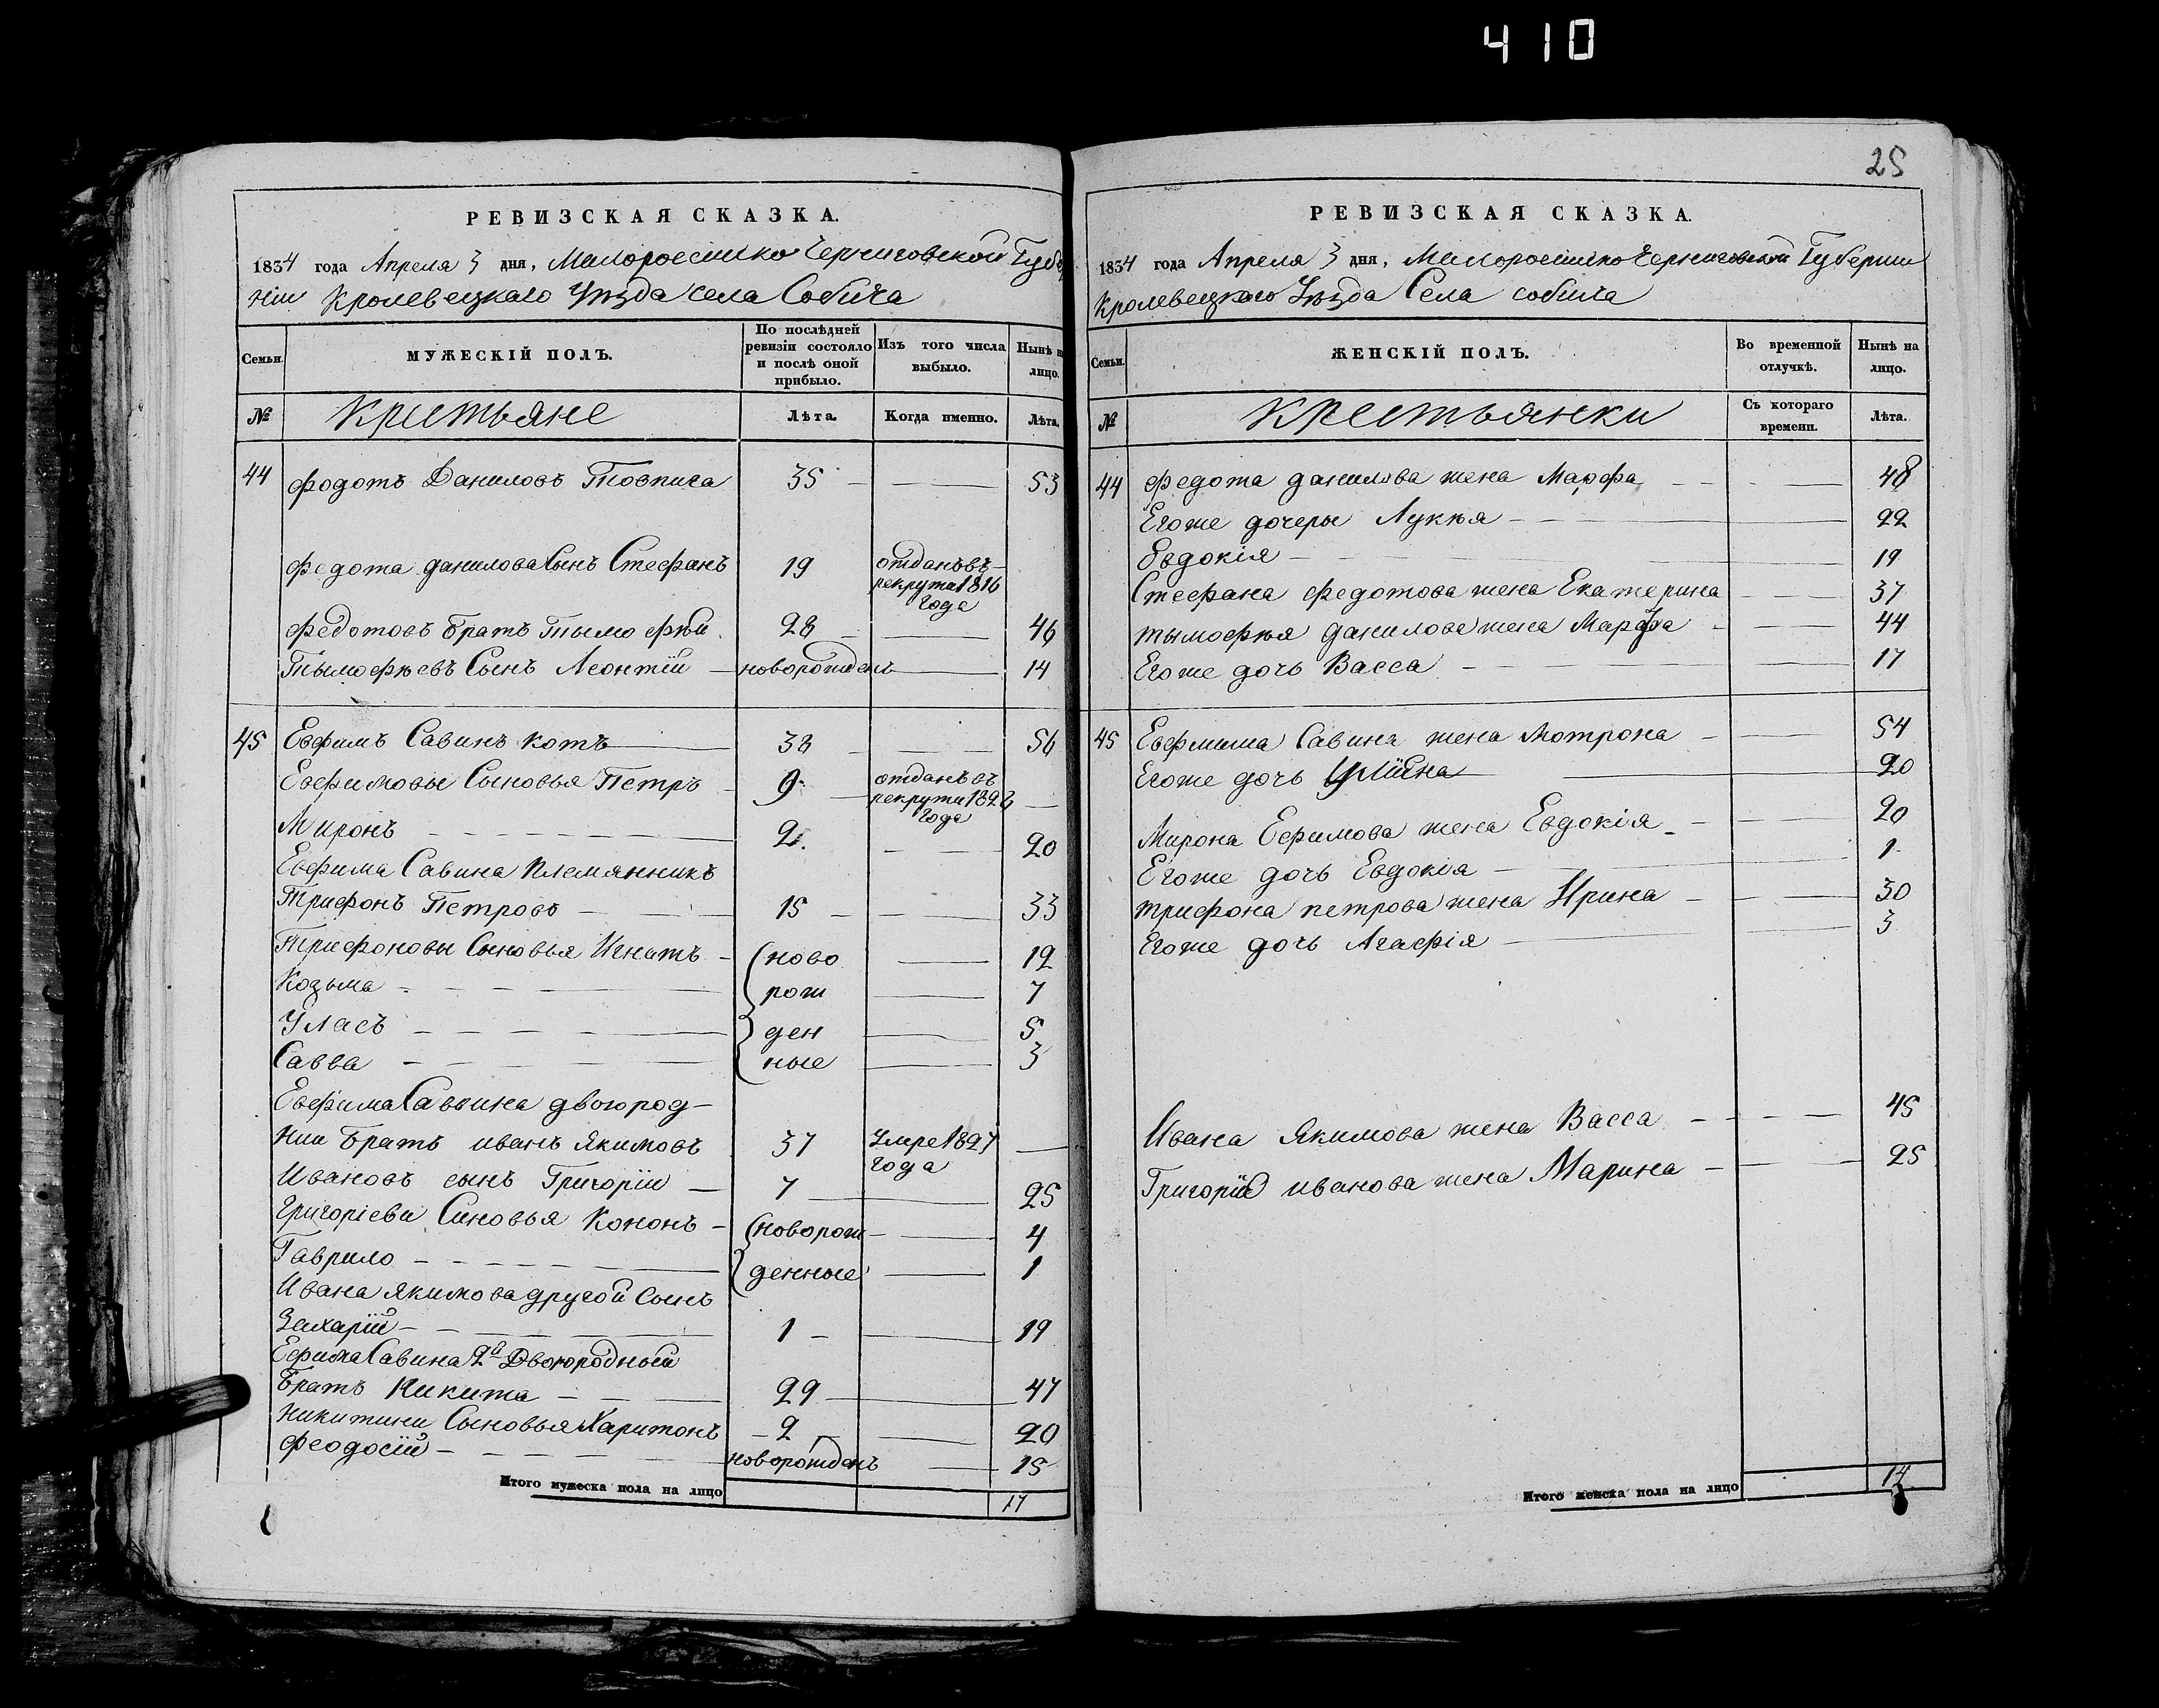 410
РЕВИЗСКАЯ СКАЗКА.
1834 года Апреля 3 дня, Малороссийско Черниговской Губер
ніи Кролевецкаго Уѣзда села Собича
Семьи.
МУЖЕСКІЙ ПОЛЪ.
По послѣдней ревизіи состояло и послѣ оной прибыло.
Изъ того числа выбыло.
Нынѣ на лицо.
№ Крестьяне Лѣта. Когда именно. Лѣта.
44 Федотъ Даниловъ Товпига 35 — 53
Федота данилова Сынъ Стефанъ 19 отданъ въ рекрути 1816 Года
Федотовъ братъ Тымофѣй 28 — 46
Тымофѣевъ Сынъ Леонтій новорожденъ — 14
45 Евфимъ Савинъ Котъ 38 — 56
Евфимовы Сыновья Петръ 9 отданъ въ рекрути 1828 Года —
Миронъ 2 — 20
Евфима Савина Племянникъ
Трифонъ Петровъ 15 — 33
Трифоновы Сыновья Игнатъ ново — 12
Козьма рож — 7
Уласъ ден — 5
Савва ные — 3
Евфима Савина двоюрод-
ний братъ иванъ Якимовъ 37 Умре 1827 Года —
Ивановъ сынъ Григорій 7 — 25
Григоріеви Синовья Кононъ новорож — 4
Гаврило денные — 1
Ивана Якимова другой Сынъ
Захарій 1 — 19
Ефима Савина 2й Двоюродный
Братъ Никита 29 — 47
Никитини Сыновья Харитонъ 2 — 20
Феодосій новорожденъ — 15
Итого мужеска пола на лицо 17
25
РЕВИЗСКАЯ СКАЗКА.
1834 года Апреля 3 дня, Малороссийско Черниговской Губернии
Кролевецкаго Уѣзда Села собича
Семьи.
ЖЕНСКІЙ ПОЛЪ.
Во временной отлучкѣ.
Нынѣ на лицо.
№ Крестьянки Съ котораго времени. Лѣта.
44 Федота данилова жена Марфа — 48
Егоже дочеры Лукѣя — 22
Евдокія — 19
Стефана Федотова жена Екатерина — 37
Тымофѣя данилова жена Марфа — 44
Егоже дочь Васса — 17
45 Евфима Савина жена Мотрона — 54
Егоже дочь Улііана — 20
Мирона Ефимова жена Евдокія — 20
Егоже дочь Евдокія — 1
Трифона петрова жена Ирина — 30
Егоже дочь Агафія — 3
Ивана Якимова жена Васса — 45
Григорія иванова жена Марина — 25
Итого женска пола на лицо 14